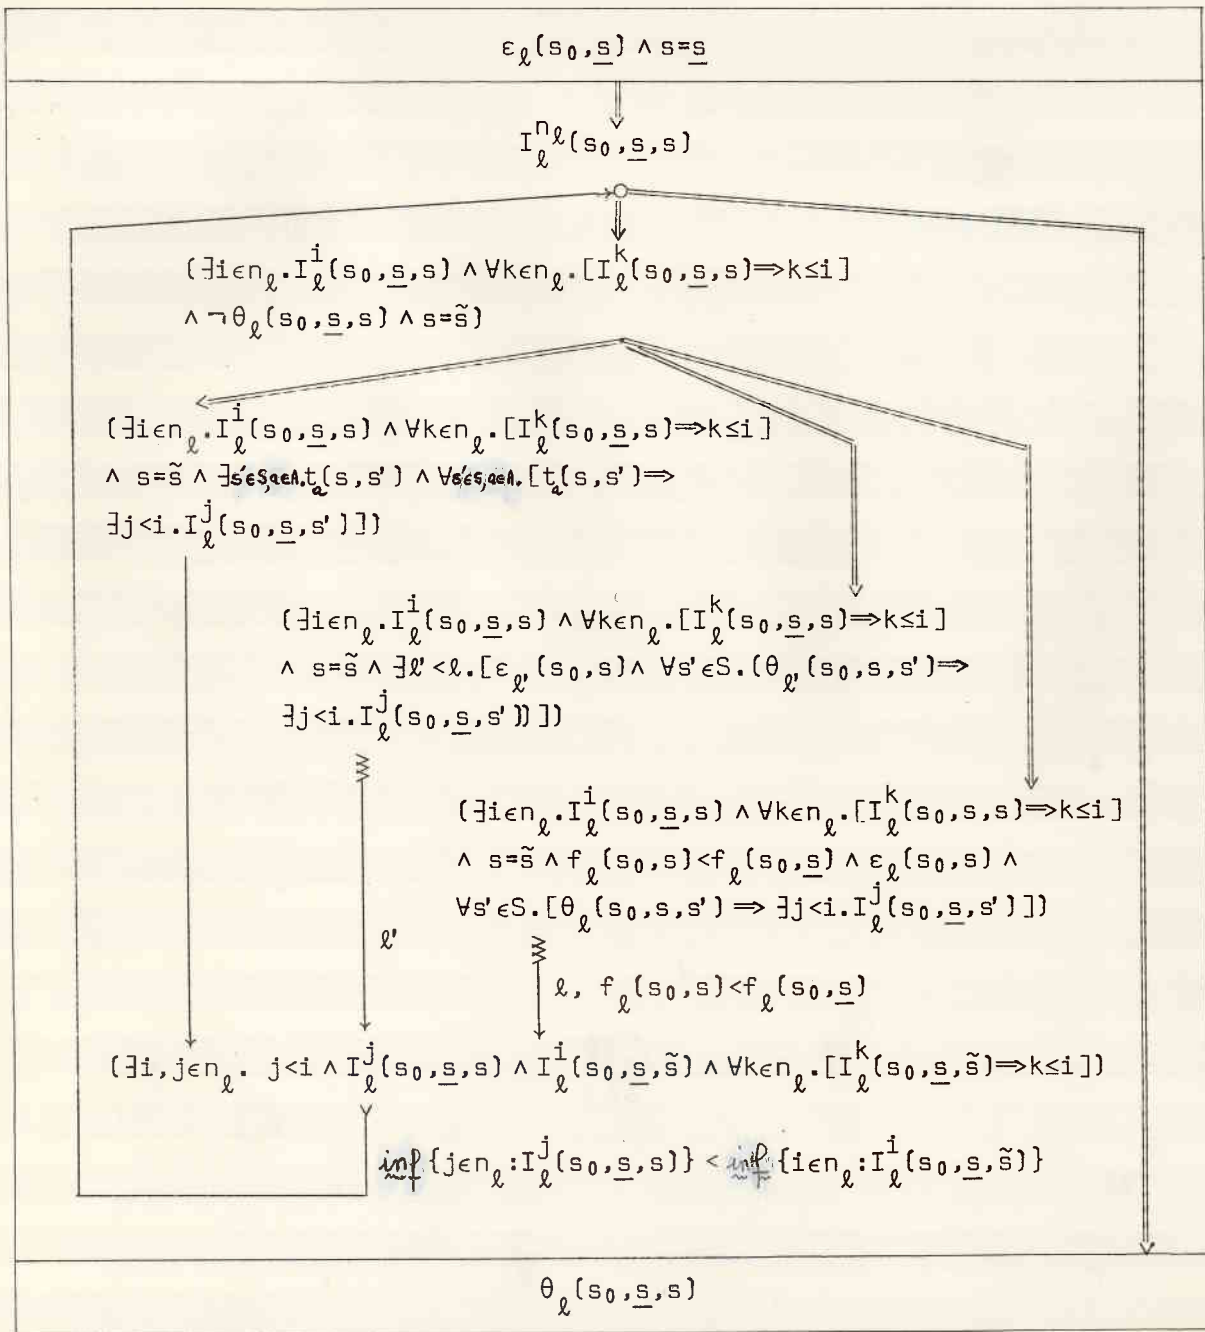 ε_ℓ(s₀,s̲) ∧ s=s̲
I_ℓ^{n_ℓ}(s₀,s̲,s)
(∃i∈n_ℓ.I_ℓ^i(s₀,s̲,s) ∧ ∀k∈n_ℓ.[I_ℓ^k(s₀,s̲,s)⟹k≤i]
∧ ¬θ_ℓ(s₀,s̲,s) ∧ s=s̃)
(∃i∈n_ℓ.I_ℓ^i(s₀,s̲,s) ∧ ∀k∈n_ℓ.[I_ℓ^k(s₀,s̲,s)⟹k≤i]
∧ s=s̃ ∧ ∃s'∈S,a∈A.t_a(s,s') ∧ ∀s'∈S,a∈A.[t_a(s,s')⟹
∃j<i.I_ℓ^j(s₀,s̲,s')])
(∃i∈n_ℓ.I_ℓ^i(s₀,s̲,s) ∧ ∀k∈n_ℓ.[I_ℓ^k(s₀,s̲,s)⟹k≤i]
∧ s=s̃ ∧ ∃ℓ'<ℓ.[ε_ℓ'(s₀,s)∧ ∀s'∈S.(θ_ℓ'(s₀,s,s')⟹
∃j<i.I_ℓ^j(s₀,s̲,s'))])
(∃i∈n_ℓ.I_ℓ^i(s₀,s̲,s) ∧ ∀k∈n_ℓ.[I_ℓ^k(s₀,s,s)⟹k≤i]
∧ s=s̃ ∧ f_ℓ(s₀,s)<f_ℓ(s₀,s̲) ∧ ε_ℓ(s₀,s) ∧
∀s'∈S.[θ_ℓ(s₀,s,s') ⟹ ∃j<i.I_ℓ^j(s₀,s̲,s')])
ℓ'
ℓ, f_ℓ(s₀,s)<f_ℓ(s₀,s̲)
(∃i,j∈n_ℓ. j<i ∧ I_ℓ^j(s₀,s̲,s) ∧ I_ℓ^i(s₀,s̲,s̃) ∧ ∀k∈n_ℓ.[I_ℓ^k(s₀,s̲,s̃)⟹k≤i])
inf{j∈n_ℓ:I_ℓ^j(s₀,s̲,s)} < inf{i∈n_ℓ:I_ℓ^i(s₀,s̲,s̃)}
θ_ℓ(s₀,s̲,s)